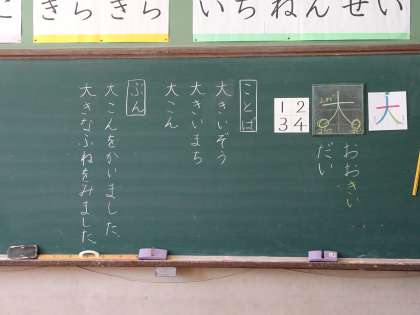 きらきら
いちねんせい
大
大
1 2
3 4
おおきい
だい
ことば
大きいぞう
大きいまち
大こん
ぶん
大こんをかいました。
大きなふねをみました。